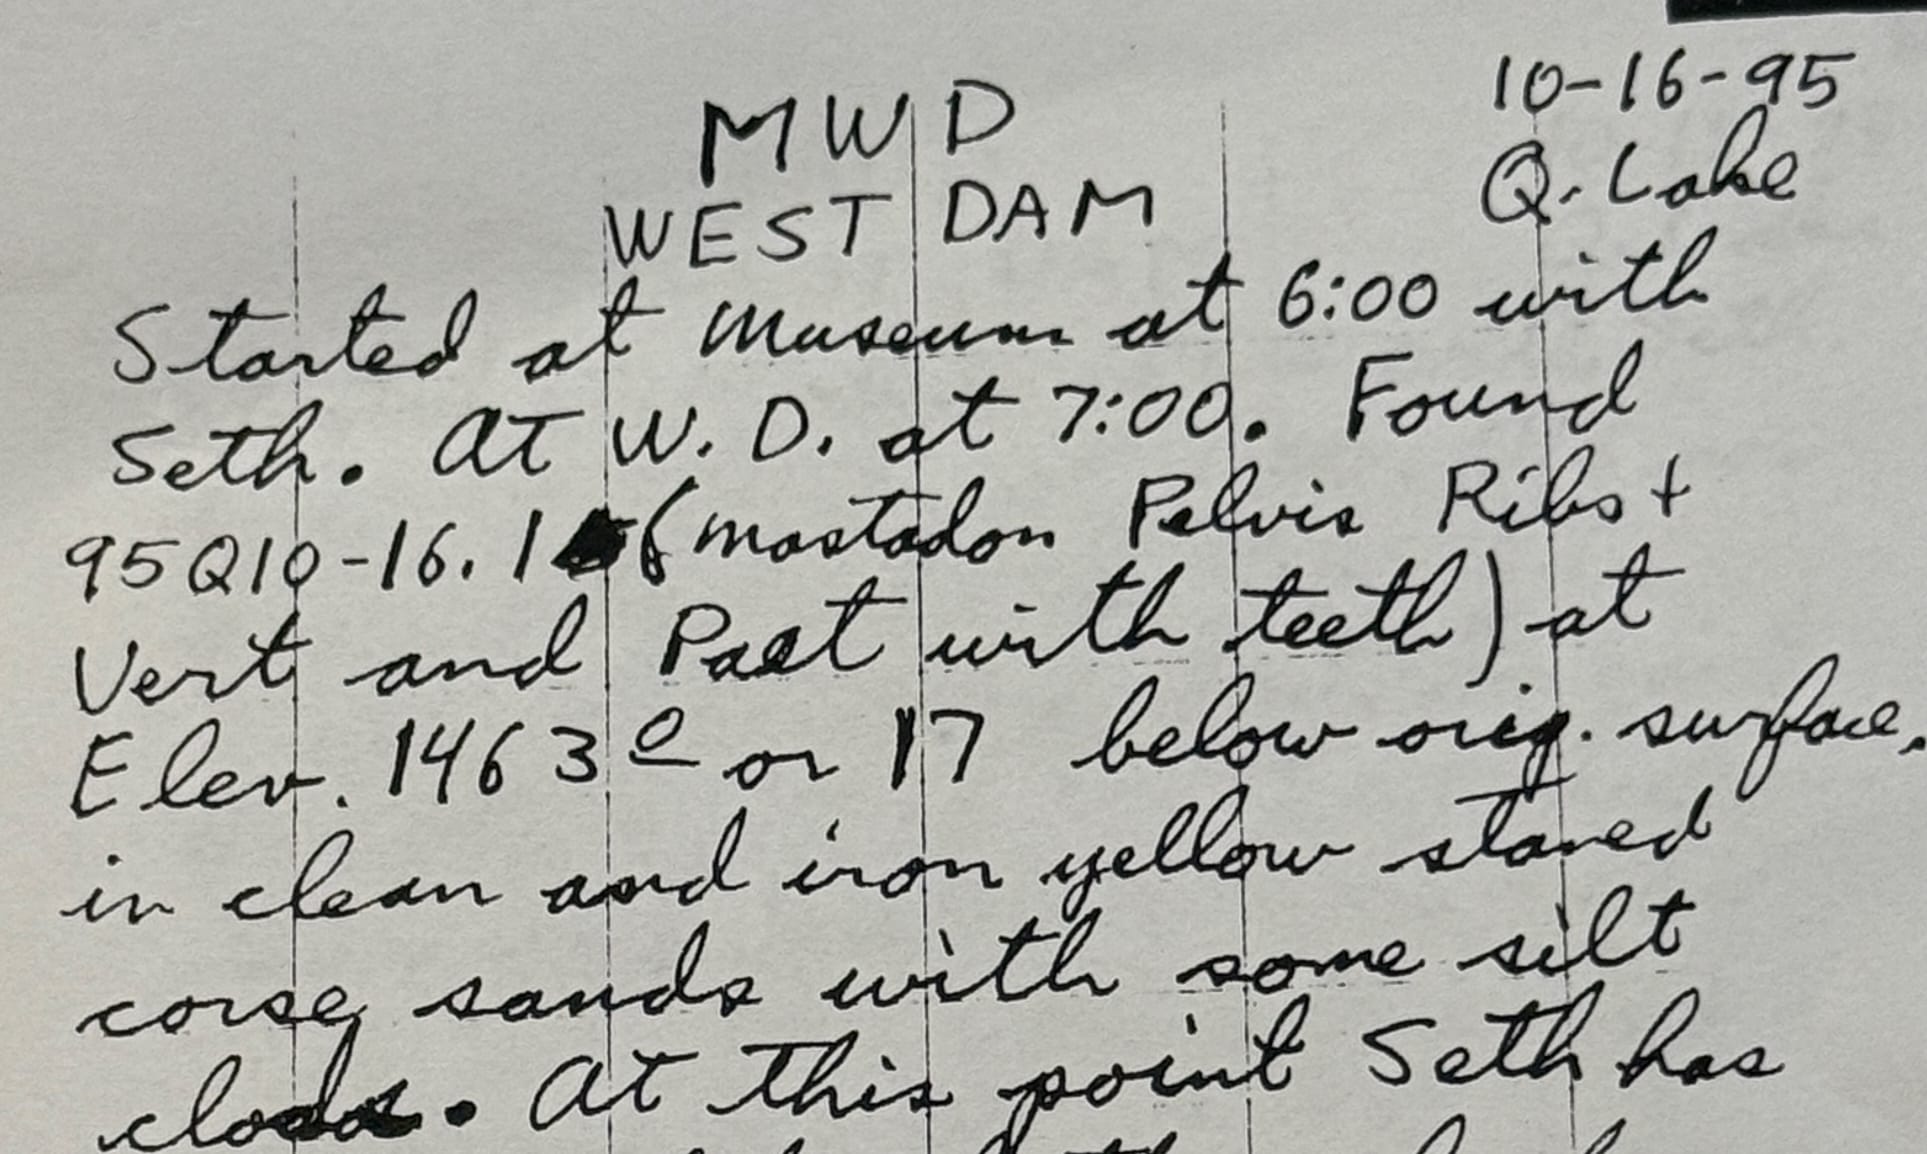 MWD
10-16-95
WEST DAM
Q. Lake
Started at Museum at 6:00 with
Seth. At W. D. at 7:00. Found
95Q10-16.1 (mastadon Pelvis Ribs +
Vert and Part with teeth) at
Elev. 1463º or 17 below orig. surface.
in clean and iron yellow staned
corse sands with some silt
clods. At this point Seth has